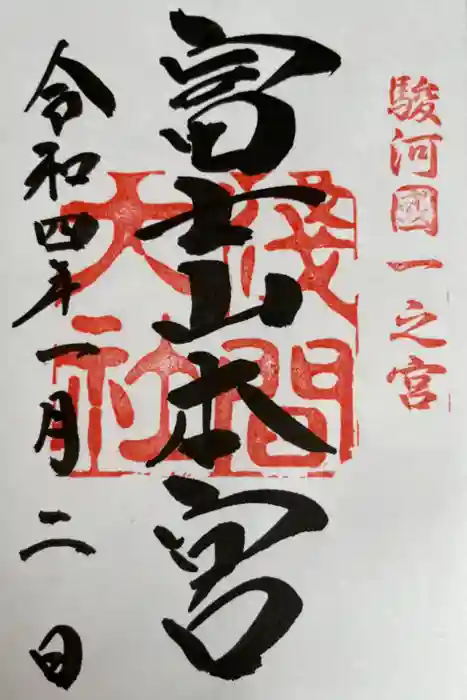 駿河國一之宮
富士山本宮
浅間
大社
令和四年一月二日